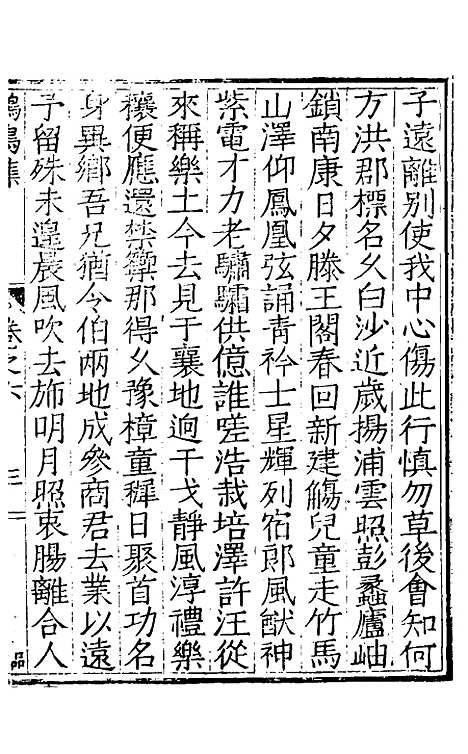 子遠離別使我中心傷此行慎勿草後會知何
方洪郡標名久白沙近歲揚浦雲照彭蠡廬岫
鎖南康日夕滕王閣春回新建觴兒童走竹馬
山澤仰鳳凰弦誦青衿士星輝列宿郎風猷神
紫電才力老驌驦供億誰嗟浩栽培澤許汪從
來稱樂土今去見于襄地迥干戈靜風淳禮樂
穰便應還禁籞那得久豫樟童穉日聚首功名
身異鄉吾兄猶令伯兩地成參商君去業以遠
予留殊未遑晨風吹去斾明月照衷腸離合人
集
卷之六
三